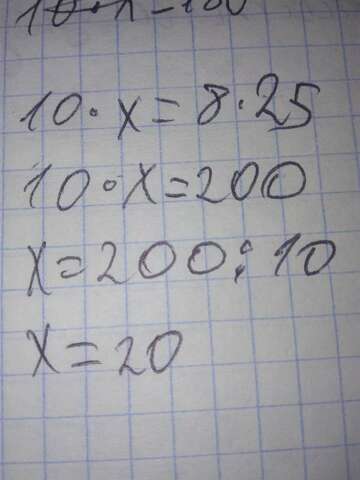 10·x=8·25
10·x=200
x=200:10
x=20